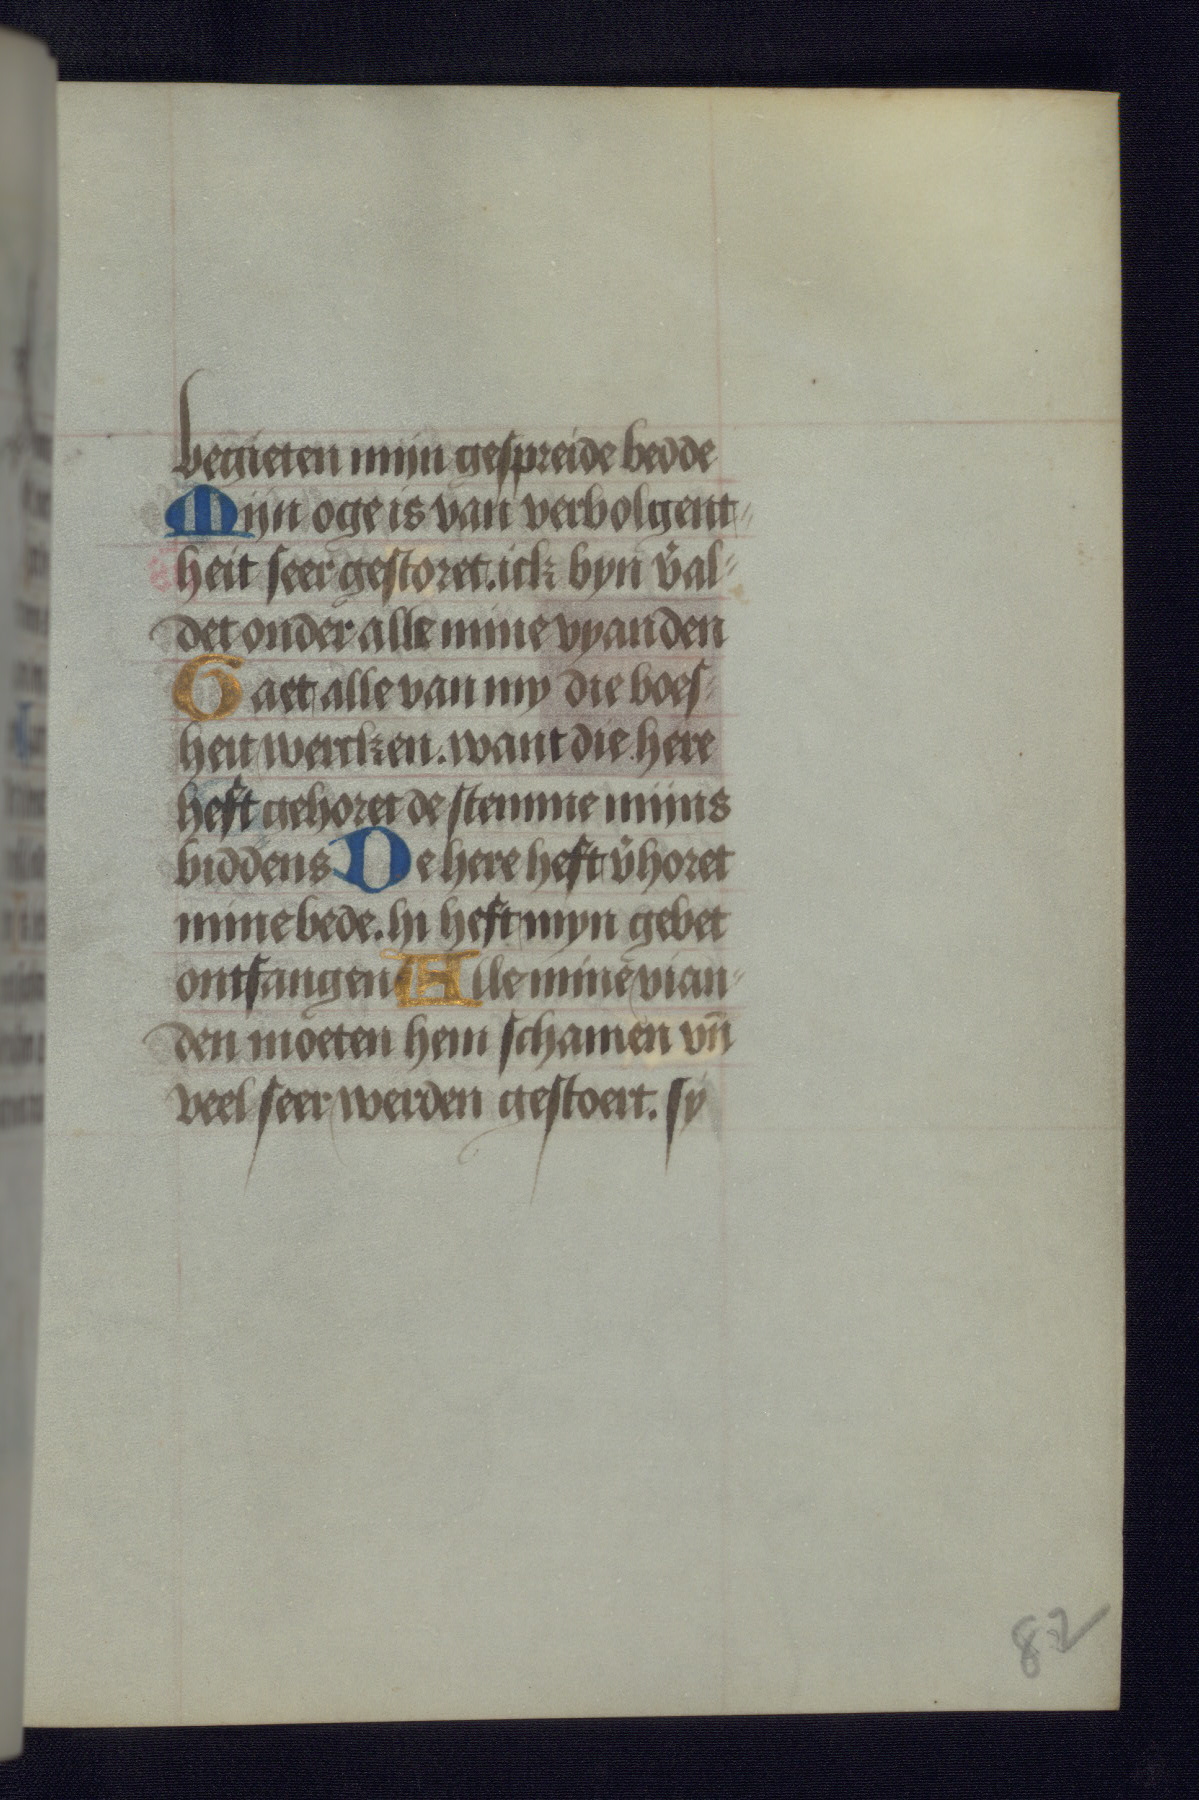 begieten mijn gespreide bedde
Mijn oge is van verbolgent-
heit seer gestoret. ick byn v̄al-
det onder alle mine vyanden
Gaet alle van my die boes-
heit wercken. want die here
heft gehoret de stemme mijns
biddens De here heft v̄horet
mine bede. hi heft myn gebet
ontfangen Alle mine vian-
den moeten hem schamen vn̄
veel seer werden gestoert. sy
82